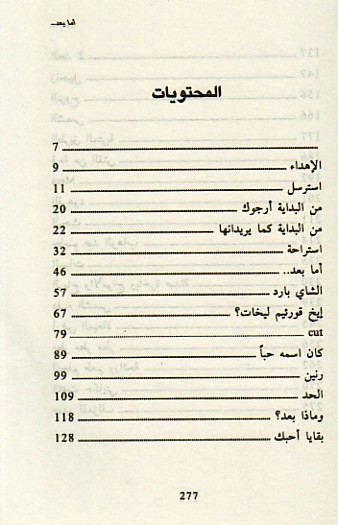 هايعـ
المحتويات
7
الإهداء 9
استرسل 11
من البداية أرجوك 20
من البداية كما يريدانها 22
استراحة 32
أما بعد.. 46
الشاي بارد 57
إيخ قورئيم ليخات؟ 67
cut 79
كان اسمه حباً 89
رنين 99
الحد 109
وماذا بعد؟ 118
بقايا أحبك 128
277